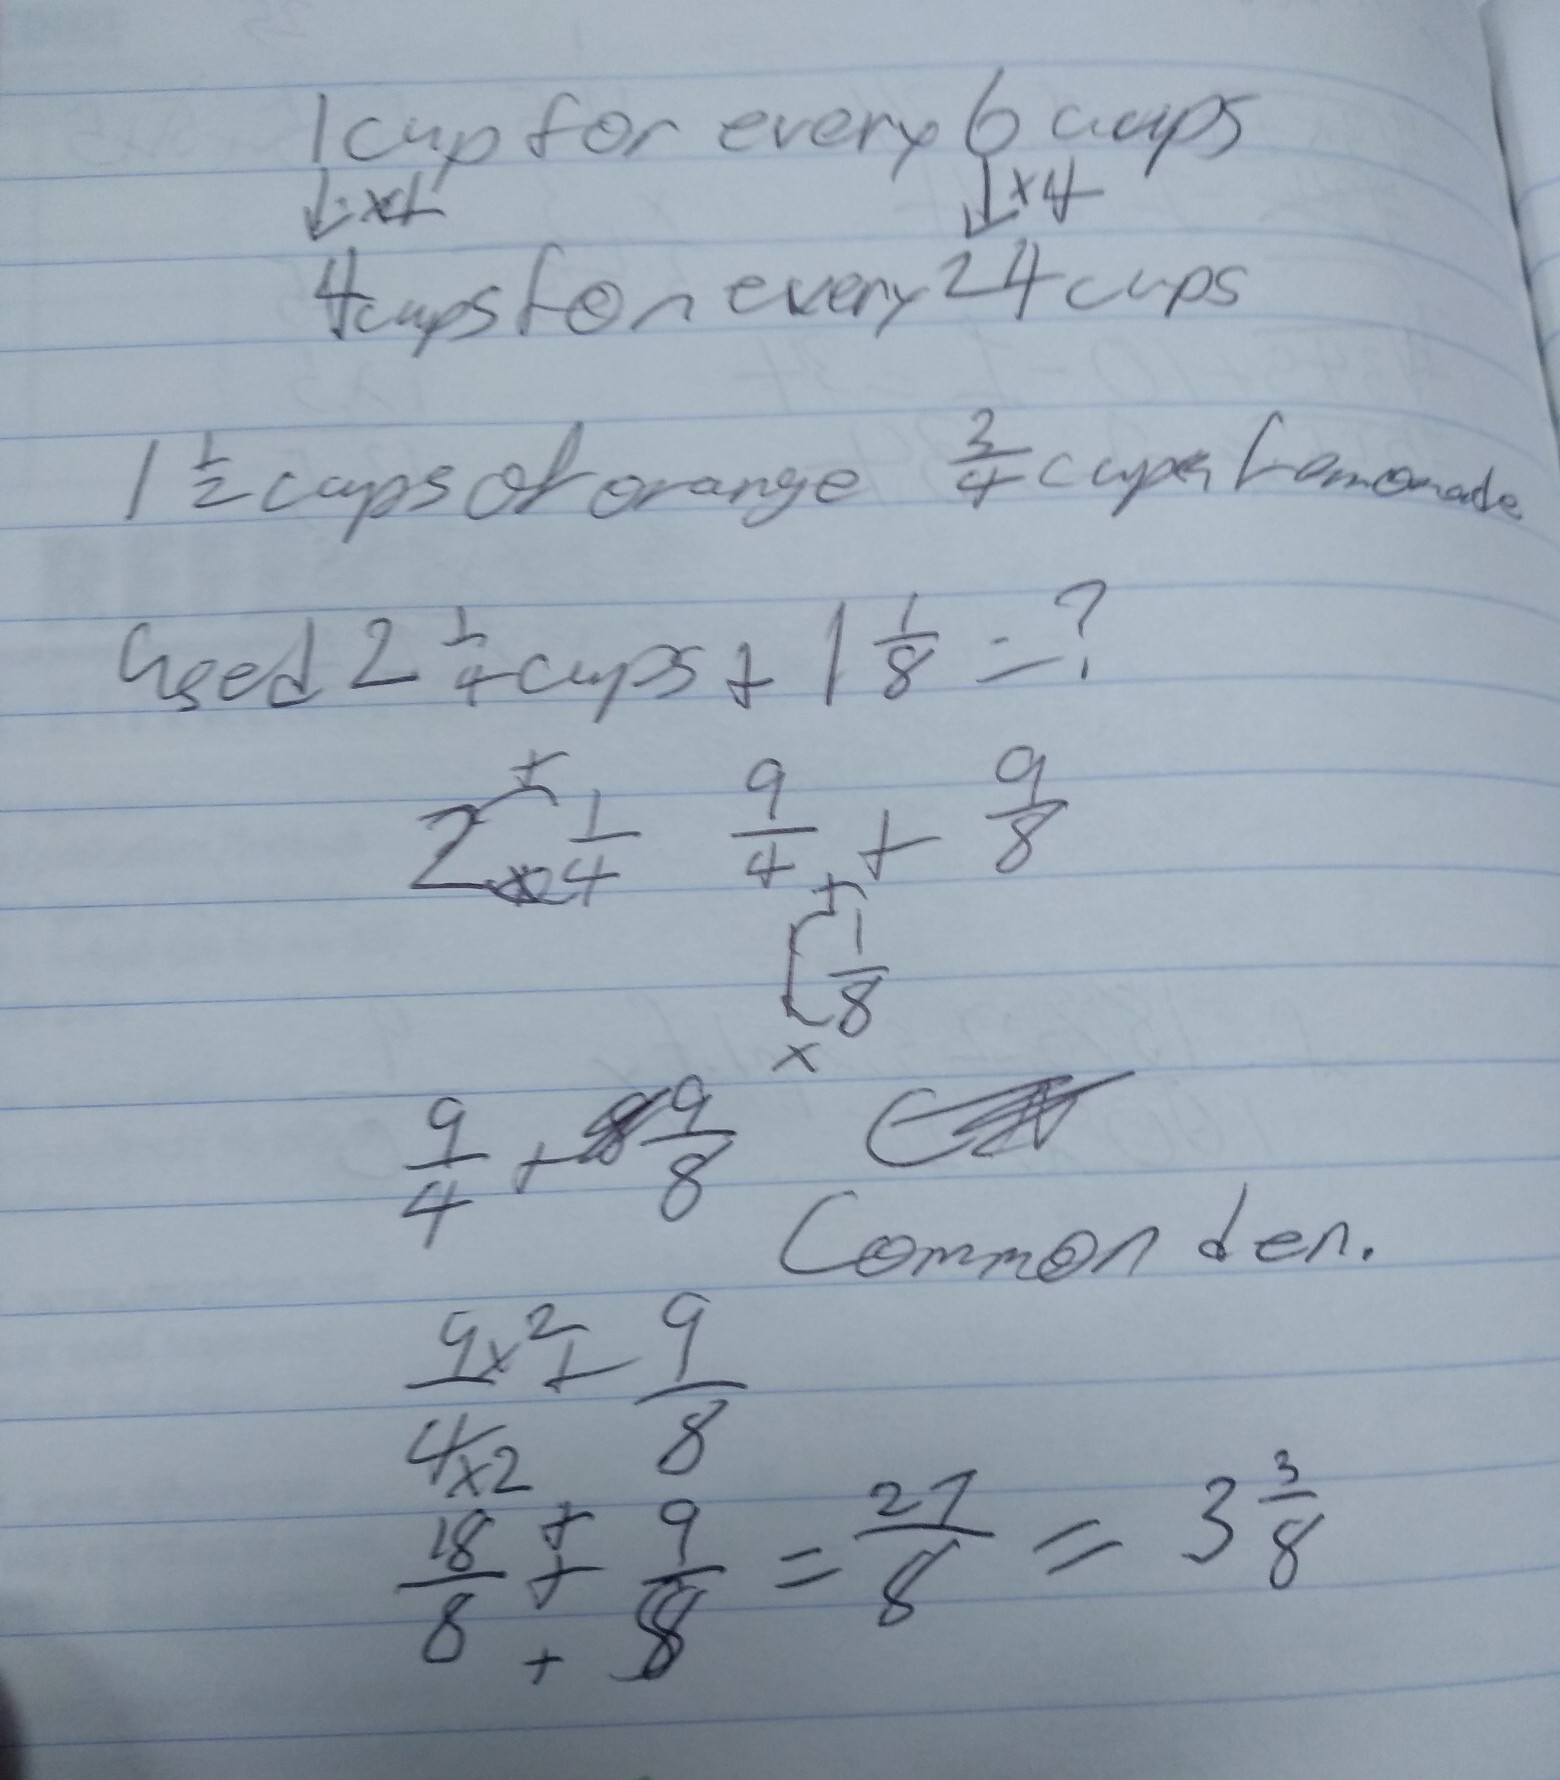 1 cup for every 6 cups
↓ ×4 ↓ ×4
4 cups for every 24 cups
1 1/2 cups of orange 3/4 cups Lemonade
Used 2 1/4 cups + 1 1/8 = ?
+
2 1/4 9/4 + 9/8
×
+
1 1/8
×
9/4 + 9/8
Common den.
9×2/4×2 + 9/8
18/8 + 9/8 = 27/8 = 3 3/8
+